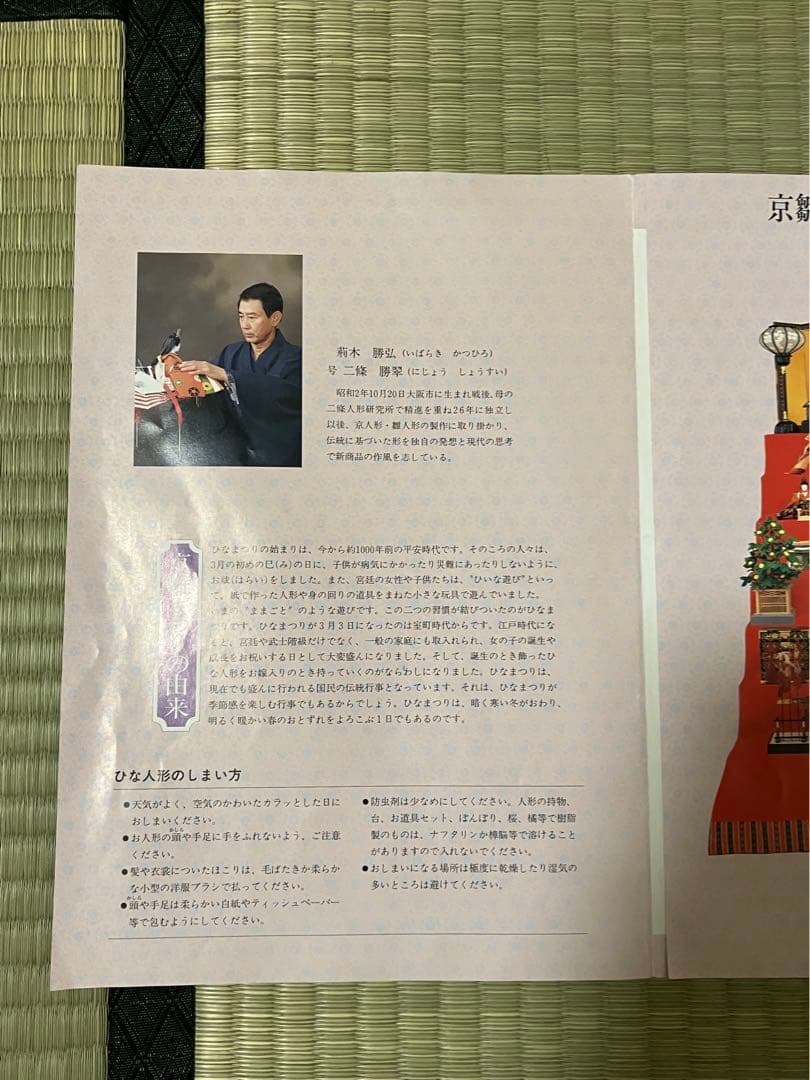 京雛
荊木 勝弘(いばらき かつひろ)
号 二條 勝翠(にじょう しょうすい)
昭和2年10月20日大阪市に生まれ戦後、母の
二條人形研究所で精進を重ね26年に独立し
以後、京人形・雛人形の製作に取り掛かり、
伝統に基づいた形を独自の発想と現代の思考
で新商品の作風を志している。
の由来
ひなまつりの始まりは、今から約1000年前の平安時代です。そのころの人々は、
3月の初めの巳(み)の日に、子供が病気にかかったり災難にあったりしないように、
お祓(はらい)をしました。また、宮廷の女性や子供たちは、“ひいな遊び”といっ
て、紙で作った人形や身の回りの道具をまねた小さな玩具で遊んでいました。
いまの“ままごと”のような遊びです。この二つの習慣が結びついたのがひなま
つりです。ひなまつりが3月3日になったのは室町時代からです。江戸時代にな
ると、宮廷や武士階級だけでなく、一般の家庭にも取入れられ、女の子の誕生や
成長をお祝いする日として大変盛んになりました。そして、誕生のとき飾ったひ
な人形をお嫁入りのとき持っていくのがならわしになりました。ひなまつりは、
現在でも盛んに行われる国民の伝統行事となっています。それは、ひなまつりが
季節感を楽しむ行事でもあるからでしょう。ひなまつりは、暗く寒い冬がおわり、
明るく暖かい春のおとずれをよろこぶ1日でもあるのです。
ひな人形のしまい方
●天気がよく、空気のかわいたカラッとした日に
おしまいください。
●お人形の頭や手足に手をふれないよう、ご注意
かしら
ください。
●髪や衣裳についたほこりは、毛ばたきか柔らか
な小型の洋服ブラシで払ってください。
●頭や手足は柔らかい白紙やティッシュペーパー
かしら
等で包むようにしてください。
●防虫剤は少なめにしてください。人形の持物、
台、お道具セット、ぼんぼり、桜、橘等で樹脂
製のものは、ナフタリンか樟脳等で溶けること
がありますので入れないでください。
●おしまいになる場所は極度に乾燥したり湿気の
多いところは避けてください。